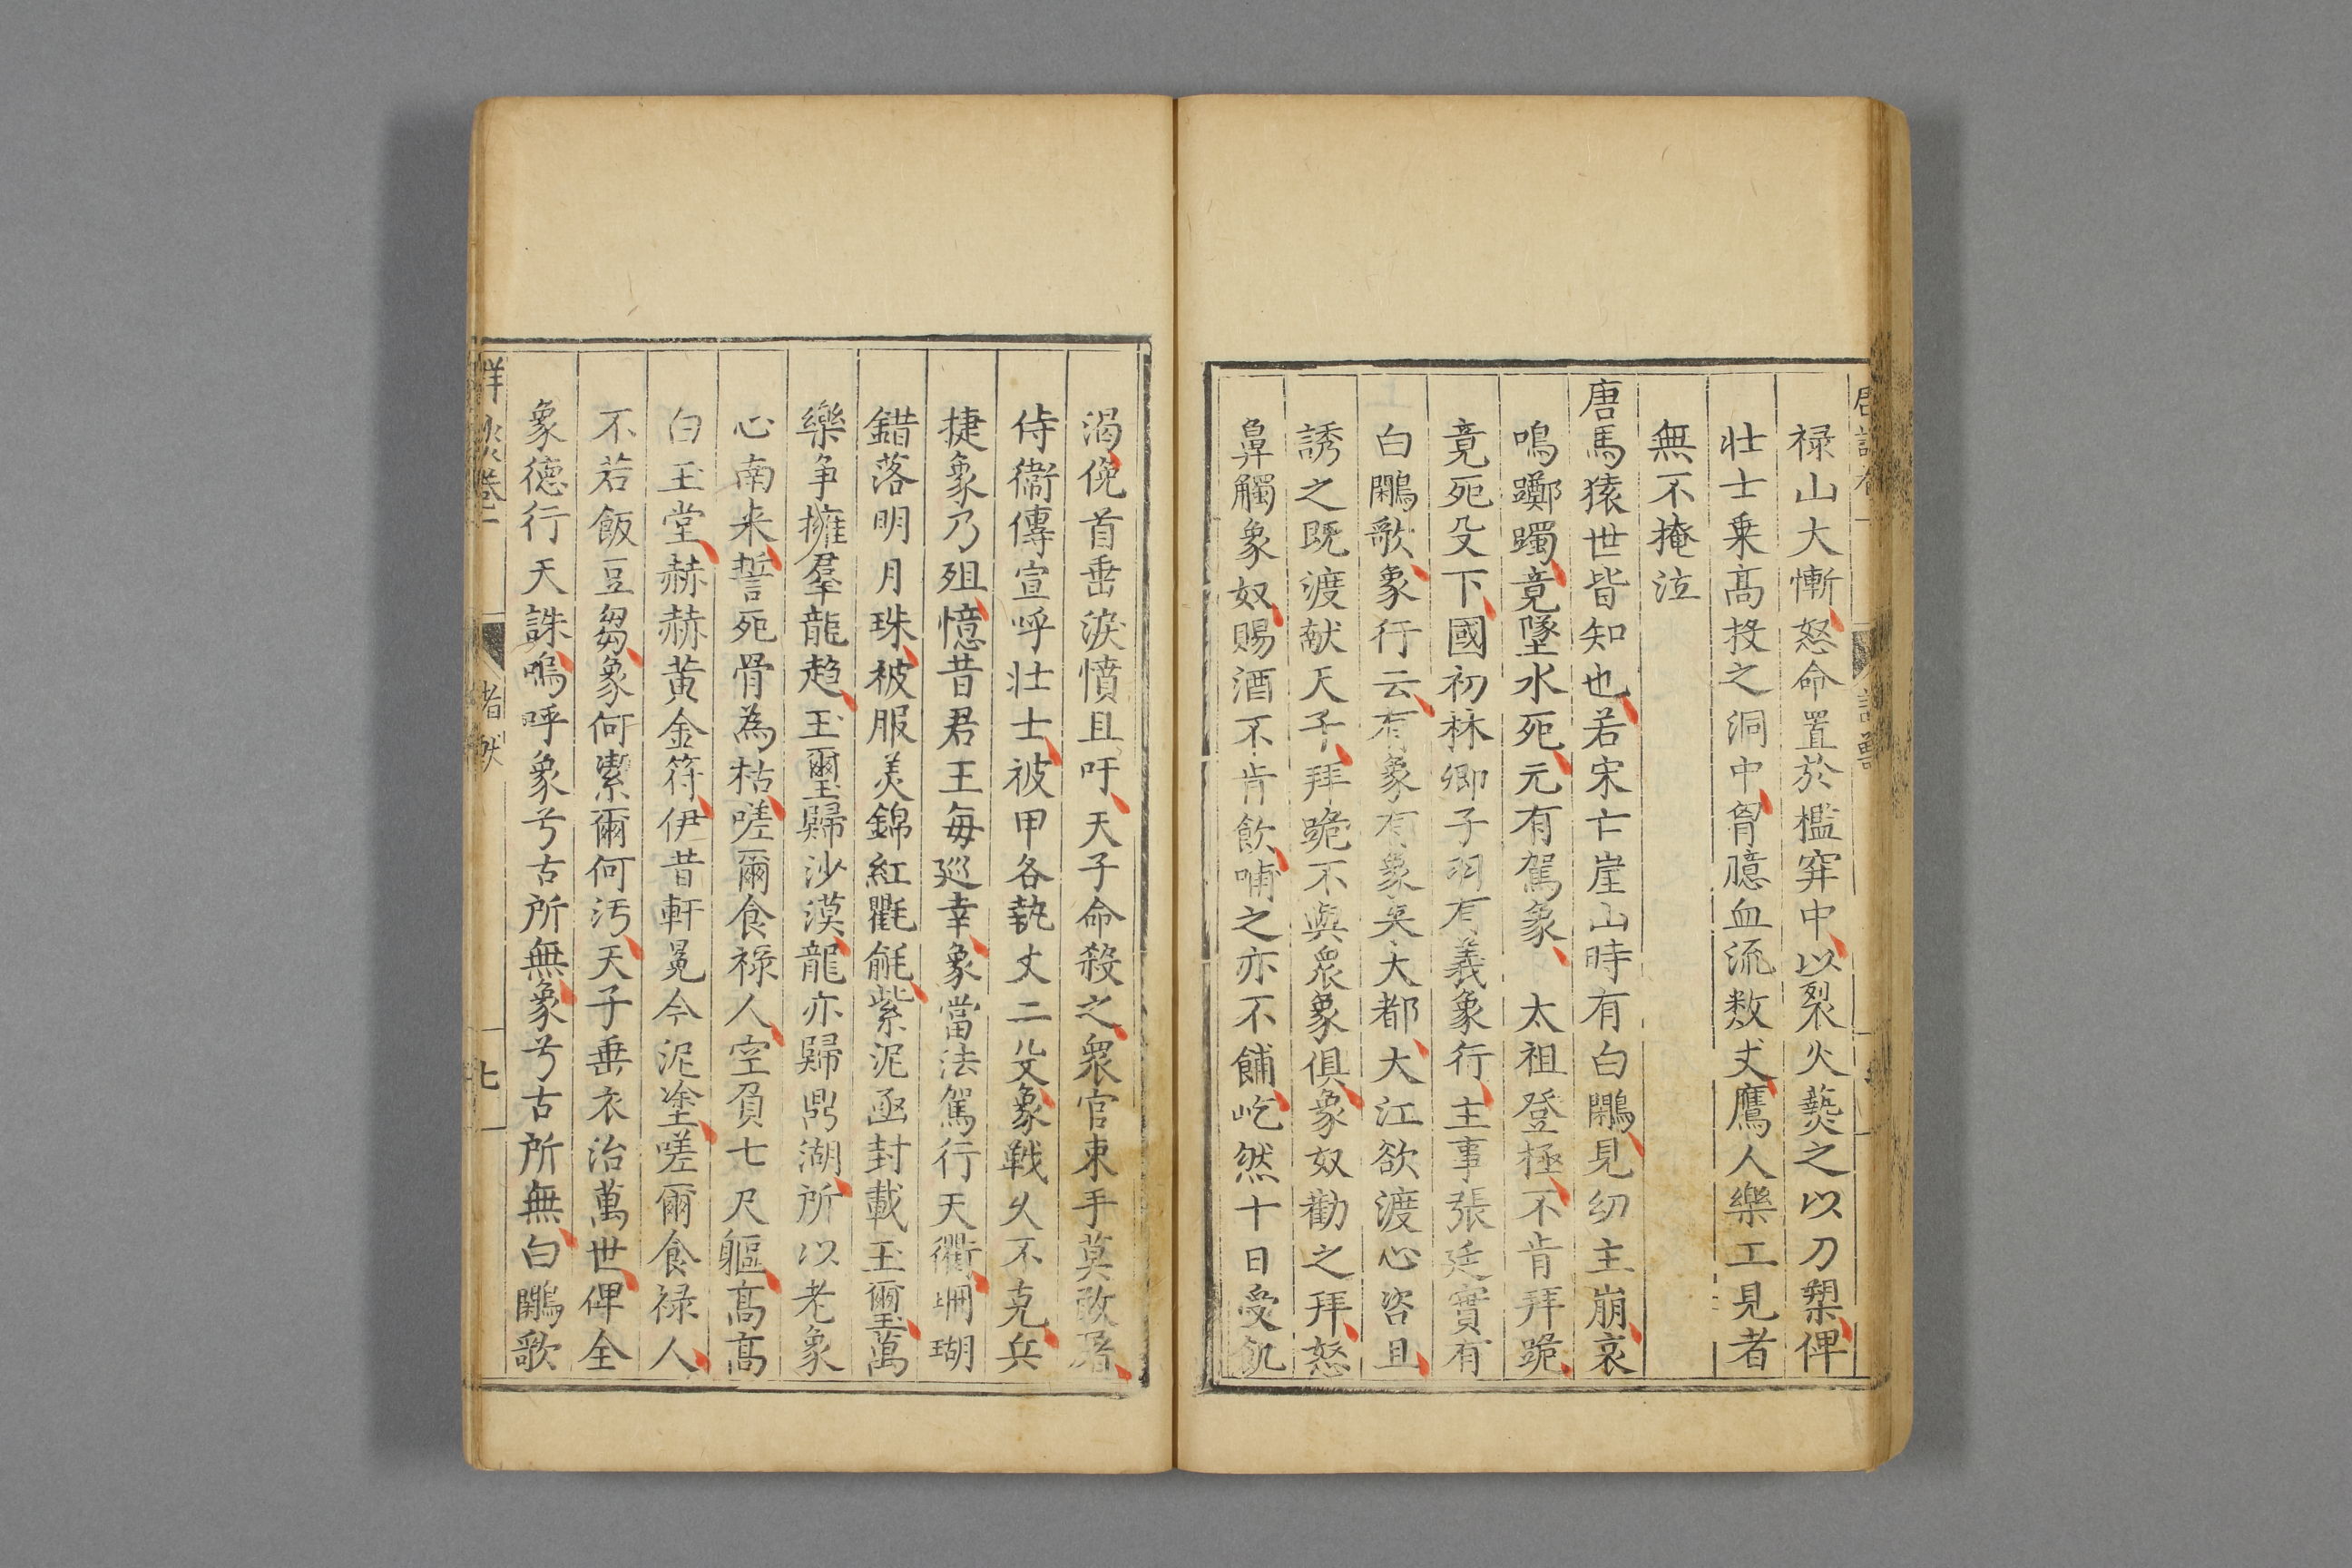 祿山大慚怒命置於檻穽中以裂火爇之以刀槊俾
壯士乗髙投之洞中胷臆血流数𠀋鷹人樂工見者
無不掩泣
唐馬猿世皆知也若宋亡崖山時有白鷴見幼主崩哀
鳴躑躅竟墜水死元有駕象　太祖登極不肯拜跪
竟死殳下國初林卿子羽有義象行主事張廷實有
白鷴歌象行云有象有象来大都大江欲渡心咨且
誘之既渡献天子拜跪不與衆象俱象奴勸之拜怒
鼻觸象奴賜酒不肯飲哺之亦不餔屹然十日受飢
渴俛首垂淚憤且吁天子命殺之衆官束手莫敢屠
侍衞傳宣呼壯士披甲各執丈二殳象戰乆不克兵
捷象乃殂憶昔君王毎廵幸象當法駕行天衢珊瑚
錯落明月珠被服美錦紅氍毹紫泥函封載玉璽萬
樂争擁羣龍趋玉璽歸沙漠龍亦歸鼎湖所以老象
心南来誓死骨為枯嗟爾食祿人空負七尺軀髙髙
白玉堂赫赫黄金符伊昔軒冕今泥塗嗟爾食祿人
不若飯豆芻象何潔爾何汚天子垂衣治萬世俾全
象德行天誅嗚呼象兮古所無象兮古所無白鷴歌
七